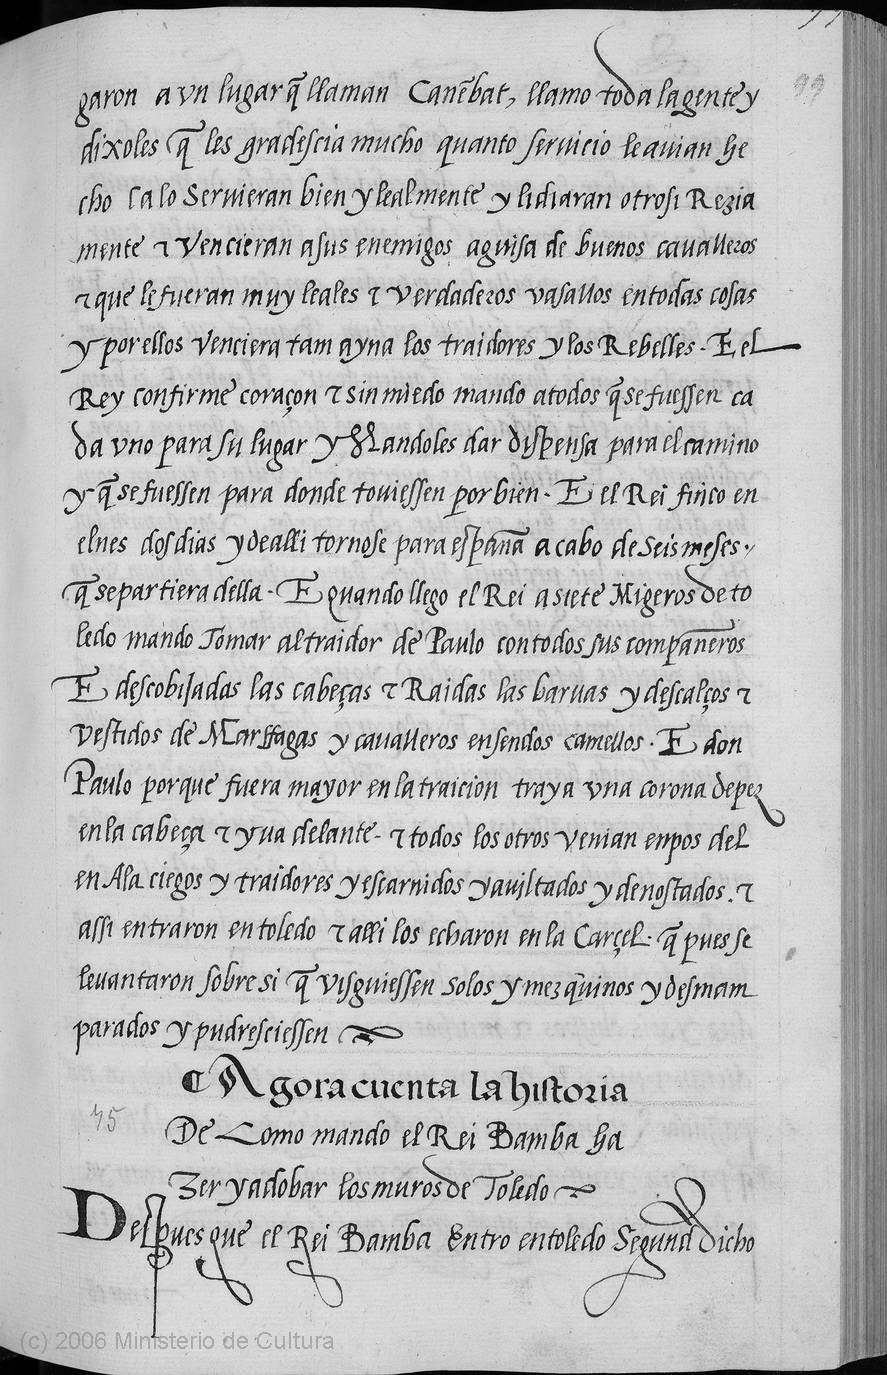 99
garon a vn lugar q̃ llaman Canẽbat, llamo toda lagente y
dixoles q̃ les gradescia mucho quanto seruicio le auian he
cho ca lo Seruieran bien y lealmente y lidiaran otrosi Rezia
mente τ Vencieran asus enemigos aguisa de buenos caualleros
τ que le fueran muy leales τ verdaderos vasallos entodas cosas
y por ellos venciera tam ayna los traidores y los Rebelles. E el
Rey con firme coraçon τ sin miedo mando atodos q̃ se fuessen ca
da vno para su lugar y Mandoles dar dispensa para el camino
y q̃ se fuessen para donde touiessen por bien. E el Rei finco en
elnes dos dias y de alli tornose para espãna a cabo de Seis meses
q̃ se partiera della. E quando llego el Rei a siete Migeros de to
ledo mando Tomar al traidor de Paulo con todos sus compãneros
E descobijadas las cabeças τ Raidas las baruas y descalços τ
vestidos de Marffagas y caualleros en sendos camellos. E don
Paulo porque fuera mayor en la traicion traya vna corona de pez
en la cabeça τ yua delante. τ todos los otros venian enpos del
en Ala ciegos y traidores y escarnidos y auiltados y denostados. τ
assi entraron en toledo τ alli los echaron en la Carçel. q̃ pues se
leuantaron sobre si q̃ visquiessen solos y mezquinos y desmam
parados y pudresciessen
¶ Agora cuenta la historia
75
De Como mando el Rei Bamba ha
Zer y adobar los muros de Toledo
Despues que el Rei Bamba Entro en toledo Segund dicho
(c) 2006 Ministerio de Cultura